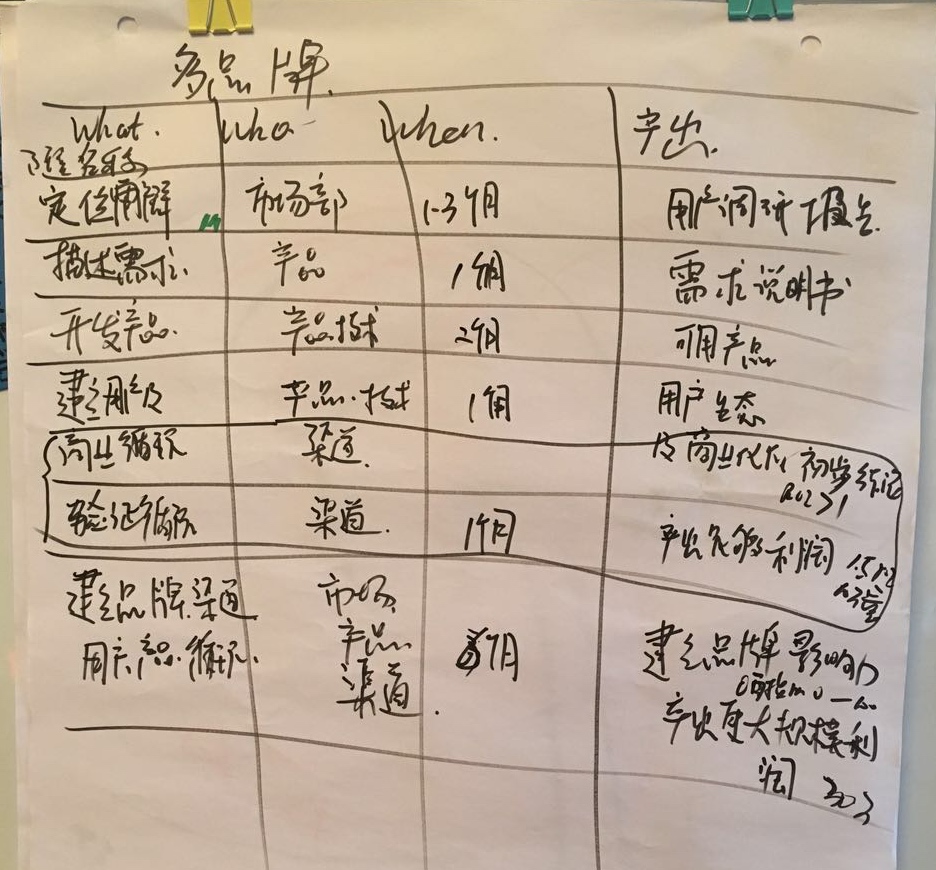 多品牌.
What. Who When. 产出.
定位用群 市场部 1-3个月 用户调研报告.
描述需求. 产品 1个月 需求说明书
开发产品. 产品技术 2个月 可用产品
建立用级 产品.技术 1个月 用户生态
商业循环 渠道. 及商业化 初步验证
ROI>1
验证循环 渠道. 1个月 产出足够利润
建立品牌.渠道 市场.
用户.产品.循环. 产品. 个月 建立品牌影响力
渠道.
产出更大规模利
润